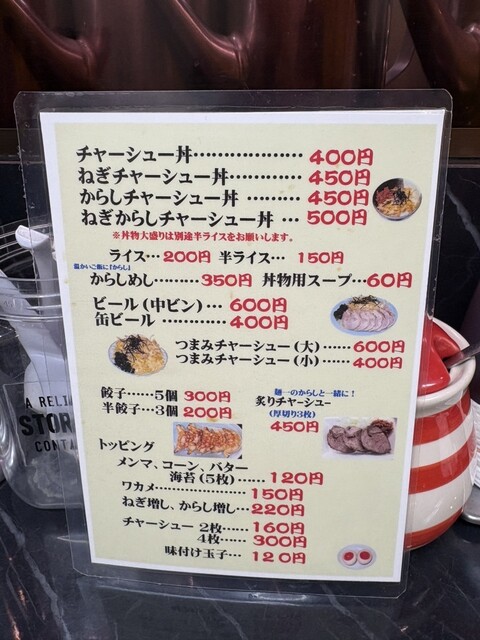 チャーシュー丼…………………400円
ねぎチャーシュー丼……………450円
からしチャーシュー丼 ………450円
ねぎからしチャーシュー丼 …500円
※丼物大盛りは別途半ライスをお願いします。
ライス…200円 半ライス… 150円
温かいご飯に【からし】
からしめし………350円 丼物用スープ…60円
ビール(中ビン)… 600円
缶ビール …………400円
つまみチャーシュー(大)……600円
つまみチャーシュー(小)……400円
餃子……5個 300円
半餃子…3個 200円
麺一のからしと一緒に!
炙りチャーシュー
(厚切り3枚)
450円
トッピング
メンマ、コーン、バター
海苔(5枚)……120円
ワカメ………………150円
ねぎ増し、からし増し…220円
チャーシュー 2枚……160円
4枚……300円
味付け玉子… 120円
A RELI
STOR
CONTA